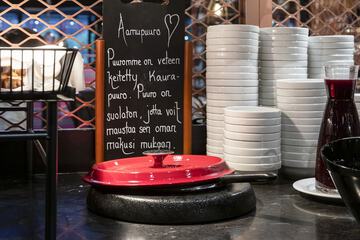 Aamupuuro ♡
Puuromme on veteen
keitetty Kaura-
puuro/Puuro on
suolaton, jotta voit
maustaa sen oman
makusi mukaan.